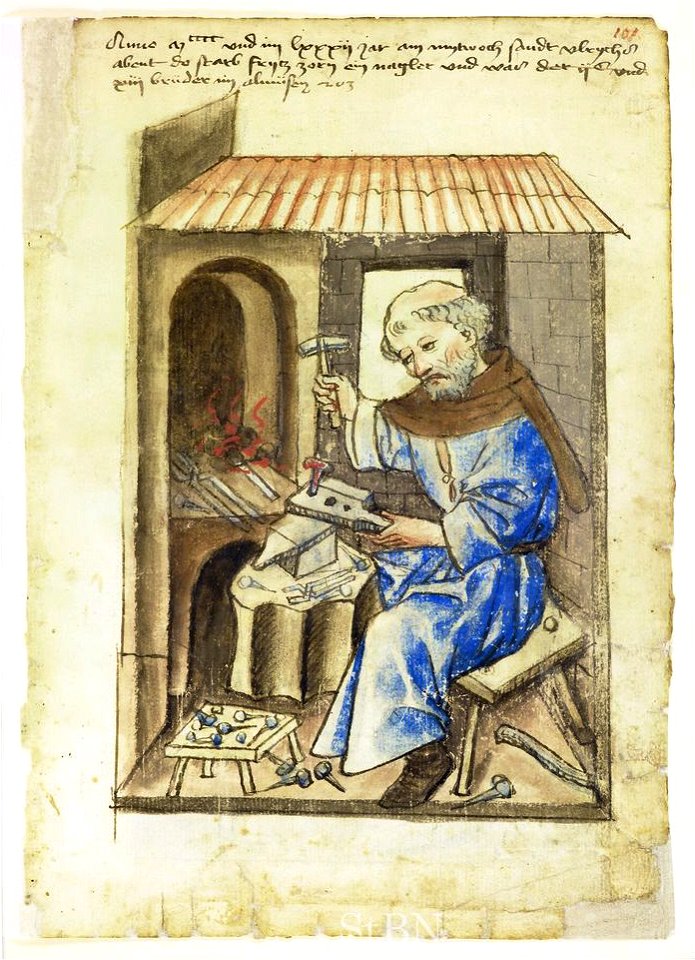 101
Anno m cccc und im lxxxii jar am mytwoch sandt vlrychs
abent do starb frytz zorn ein nagler vnd was der ijc vnd
xiiii bruder im almusen
StBN